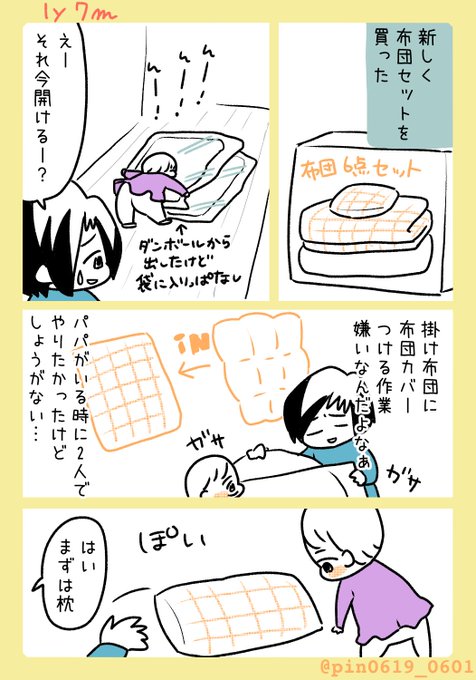 1y7m
新しく
布団セットを
買った
布団6点セット
んーんーんー!!!
えー
それ今開けるー?
ダンボールから
出したけど
袋に入りっぱなし
掛け布団に
布団カバー
つける作業
嫌いなんだよなぁ
iN
ガサ
ガサ
パパがいる時に2人で
やりたかったけど
しょうがない…
ぽい
はい
まずは枕
@pin0619_0601